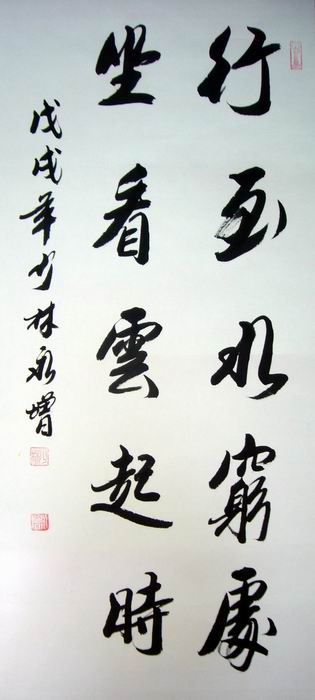 行至水窮處
坐看雲起時
戊戌年少林永增